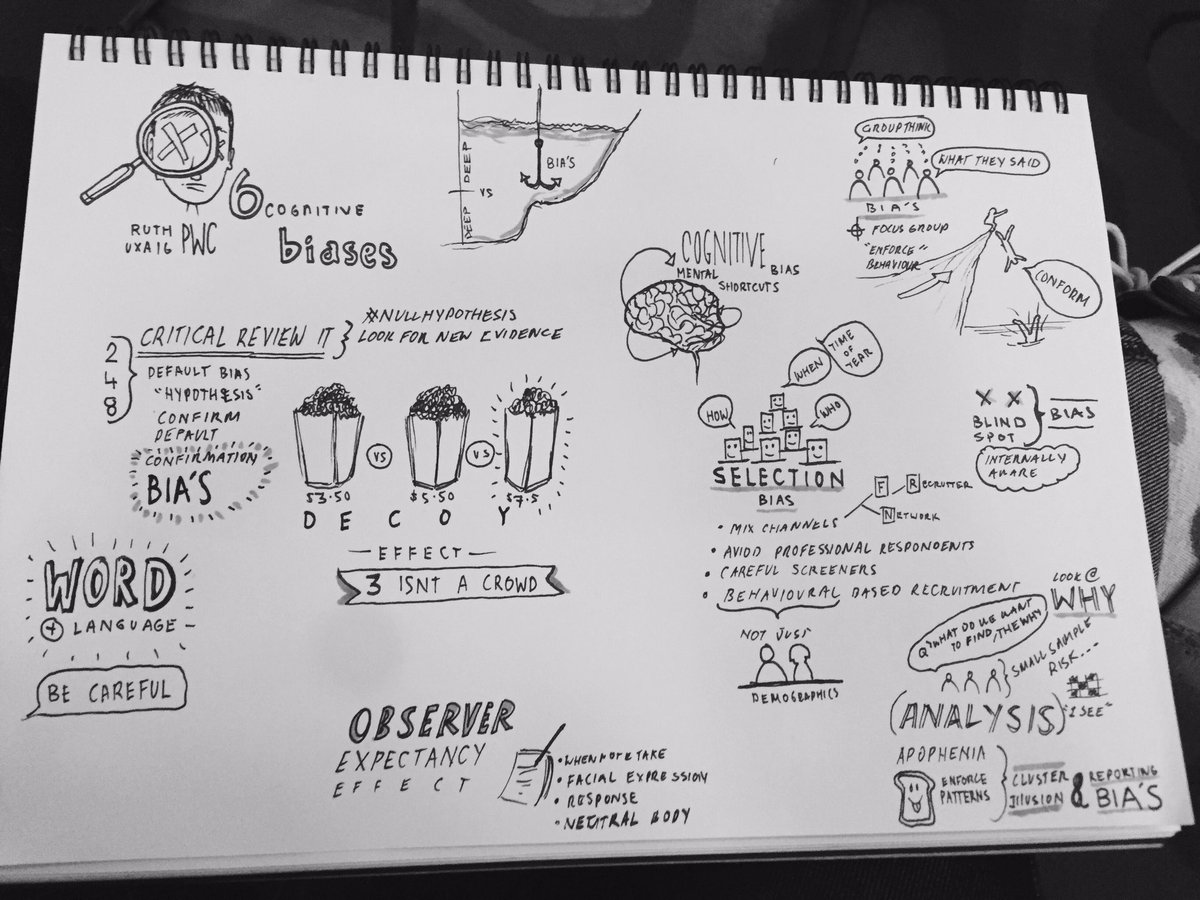 RUTH
UXA16 PWC
6 COGNITIVE
biases
DEEP
VS
DEEP
BIA'S
GROUP THINK
WHAT THEY SAID
BIA'S
FOCUS GROUP
"ENFORCE"
BEHAVIOUR
CONFORM
COGNITIVE
BIAS
MENTAL
SHORTCUTS
CRITICAL REVIEW IT
NULLHYPOTHESIS
LOOK FOR NEW EVIDENCE
2
4
8
DEFAULT BIAS
"HYPOTHESIS"
CONFIRM
DEFAULT
CONFIRMATION
BIA'S
VS
VS
$3.50
$5.50
$7.5
DECOY
— EFFECT —
3 ISNT A CROWD
WORD
+ LANGUAGE -
BE CAREFUL
OBSERVER
EXPECTANCY
EFFECT
• WHEN NOTE TAKE
• FACIAL EXPRESSION
• RESPONSE
• NEUTRAL BODY
HOW
WHEN
TIME
OF
YEAR
WHO
SELECTION
BIAS
• MIX CHANNELS
F
RECRUITER
NETWORK
• AVIOD PROFESSIONAL RESPONDENTS
• CAREFUL SCREENERS
• BEHAVIOURAL BASED RECRUITMENT
NOT JUST
DEMOGRAPHICS
X X
BLIND
SPOT
BIAS
INTERNALLY
AWARE
LOOK @
WHY
Q'WHAT DO WE WANT
TO FIND, THE WHY
SMALL SAMPLE
RISK...
(ANALYSIS)
"I SEE"
APOPHENIA
ENFORCE
PATTERNS
CLUSTER
ILLUSION
& REPORTING
BIA'S